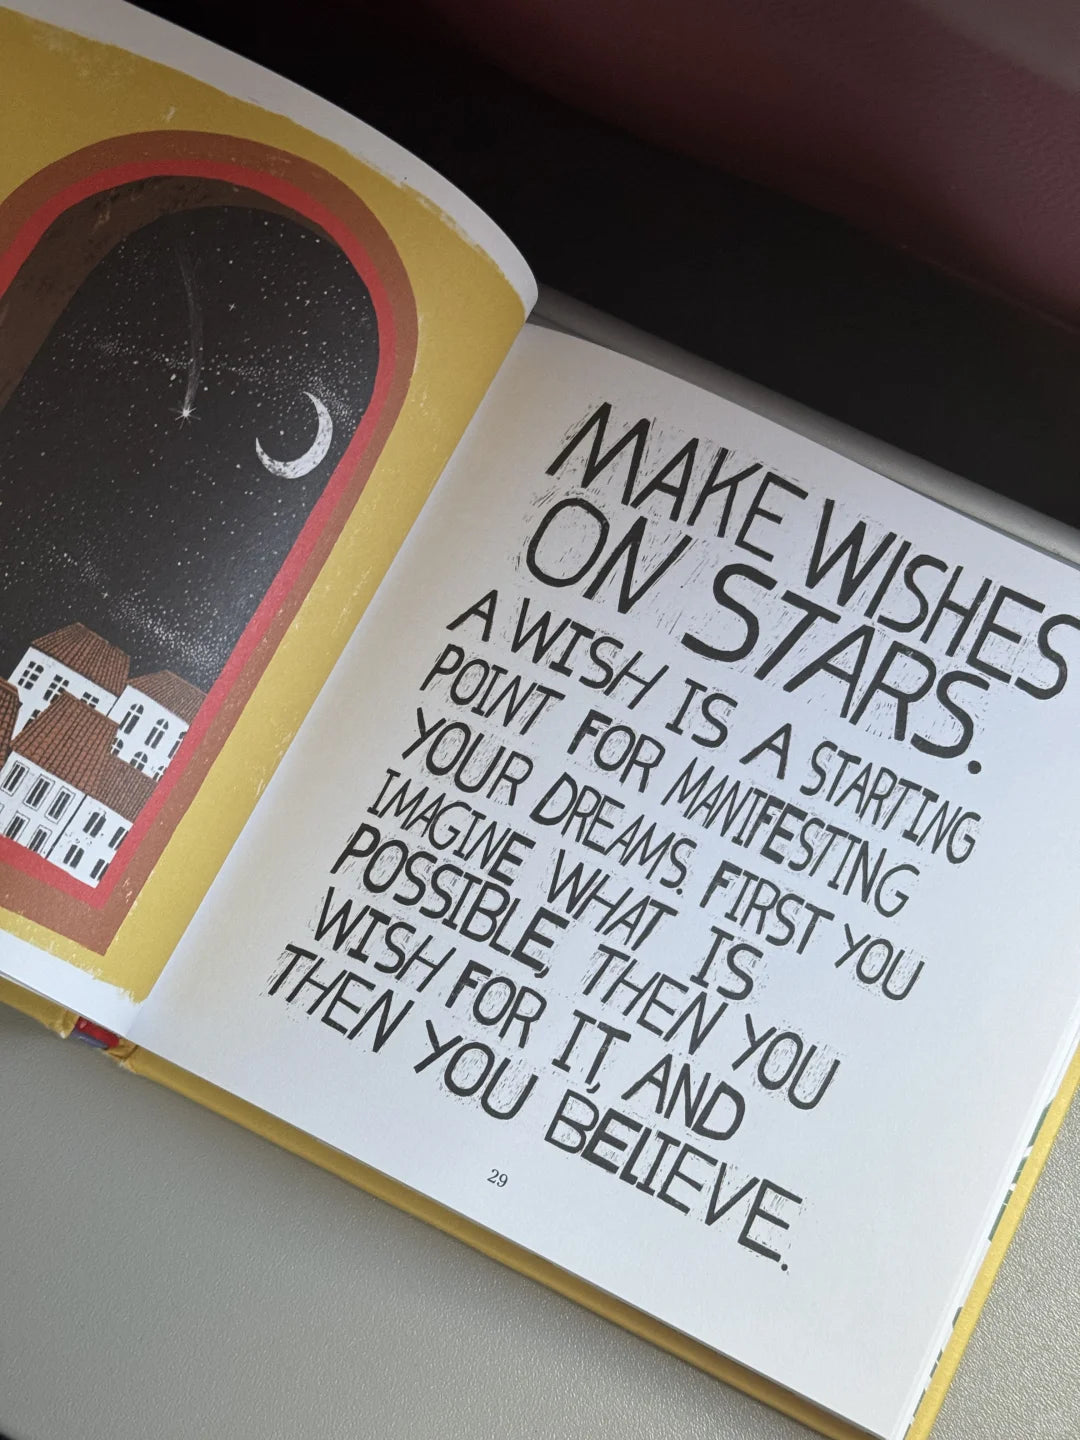 MAKE WISHES
ON STARS.
A WISH IS A STARTING
POINT FOR MANIFESTING
YOUR DREAMS. FIRST YOU
IMAGINE WHAT IS
POSSIBLE, THEN YOU
WISH FOR IT, AND
THEN YOU BELIEVE.
29